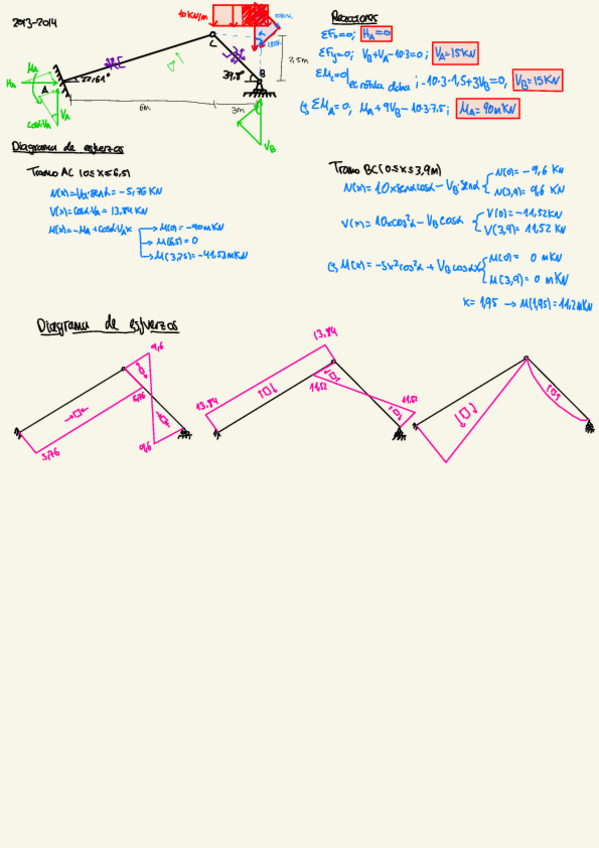 2013-2014
10 KN/m
Reacciones
ΣFx=0; HA=0
ΣFy=0; VB+VA-10·3=0; VA=15KN
ΣMc=0| ecrótula dcha; -10·3·1,5+3VB=0, VB=15KN
ΣMA=0, MA+9VB-10·3·7,5; MA=90mKN
MA
HA
A
22,61°
C
39,8°
B
2,5m
6m
3m
VA
cosαVA
VB
Diagrama de esfuerzos
Tramo AC (0≤x≤6,5)
N(x)=VA·senα=-5,76 KN
V(x)=cosαVA=13,84 KN
M(x)=-MA+cosαVAx
M(0)=-90mKN
M(6,5)=0
M(3,25)=-41,53mKN
Tramo BC (0≤x≤3,9m)
N(x)=10xsenαcosα-VB·senα
N(0)=-9,6 KN
N(3,9)=9,6 KN
V(x)=10xcos²α-VBcosα
V(0)=-11,52KN
V(3,9)=11,52 KN
M(x)=-5x²cos²α+VBcosαx
M(0)= 0 mKN
M(3,9)= 0 mKN
x=1,95 → M(1,95)=11,2mKN
Diagrama de esfuerzos
9,6
5,76
5,76
9,6
13,84
13,84
11,52
11,52